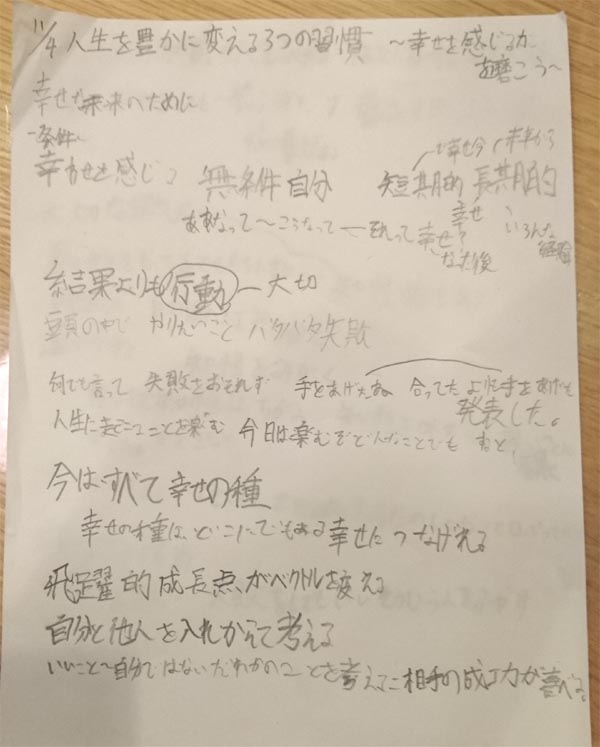 11/4 人生を豊かに変える3つの習慣 〜幸せを感じる力
を磨こう〜
幸せな未来のために
条件
幸せを感じる 無条件 自分 短期的 長期的
幸せ今 未来から
ああなって〜こうなって ー それって幸せ? 幸せ いろんな
なった後 経験
結果よりも行動ー大切
頭の中で やりたいこと バタバタ失敗
何でも言って 失敗をおそれず 手をあげた 合ってたより手をあげて
発表した。
人生に起こることを楽しむ 今日は楽むぞどんなことでも
今はすべて幸せの種
幸せの種は、どこにでもある幸せにつなげれる
飛躍的成長点、がベクトルを変える
自分と他人を入れかえて考える
いいこと〜自分ではないだれかのことを考える 相手の成功が喜べる。